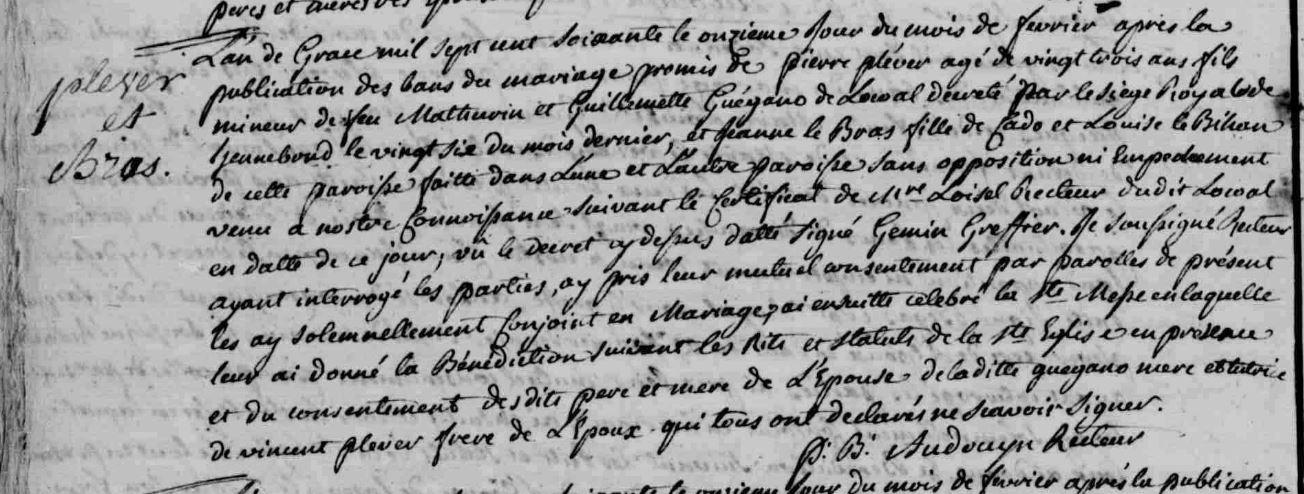 peres et meres des
L'an de Grace mil sept cent soixante le onzieme Jour du mois de fevrier après la
plever publication des bans du mariage promis de pierre pléver agé de vingt trois ans fils
et mineur de feu Mathurin et Guillemette Guégano de Locoal decreté par le siege Royal de
Bras. hennebond le vingt six du mois dernier, et Jeanne le Bras fille de Cado et Louise le Bihan
de cette paroisse faitte dans L'une et L'autre paroisse sans opposition ni Empechement
venu a nostre Connoissance suivant le Certificat de Mre Loisel Recteur dudit Locoal
en datte de ce jour, vû le decret cy dessus datté signé Gemin Greffier. Je soussigné Recteur
ayant interrogé les parties, ay pris leur mutuel consentement par parolles de présent
les ay solemnellement Conjoint en Mariage, ai ensuitte celebré la Ste Messe en laquelle
leur ai donné la Bénédiction suivant les Rits et statuts de la Ste Eglise en presence
et du consentement desdits pere et mere de L'Epouse de laditte guegano mere et tutrice
de vincent plever frere de L'Epoux. qui tous ont declarés ne scavoir signer.
p. B. Audouyn Recteur
soixante le onzieme Jour du mois de fevrier après la publication